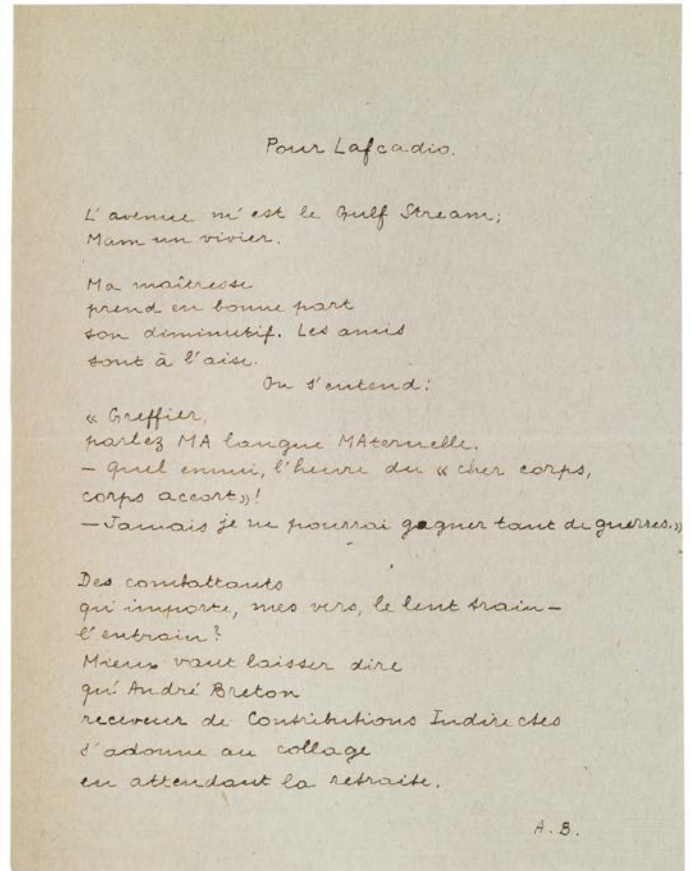 Pour Lafcadio.
L'avenue m'est le Gulf Stream;
Mam un vivier.
Ma maîtresse
prend en bonne part
son diminutif. Les amis
sont à l'aise.
On s'entend:
« Greffier,
parlez MA langue MAternelle.
– Quel ennui, l'heure du « cher corps,
corps accort»!
– Jamais je ne pourrai gagner tant de guerres.»
Des combattants
qu'importe, mes vers, le lent train –
l'entrain?
Mieux vaut laisser dire
qu'André Breton
receveur de Contributions Indirectes
s'adonne au collage
en attendant la retraite.
A. B.